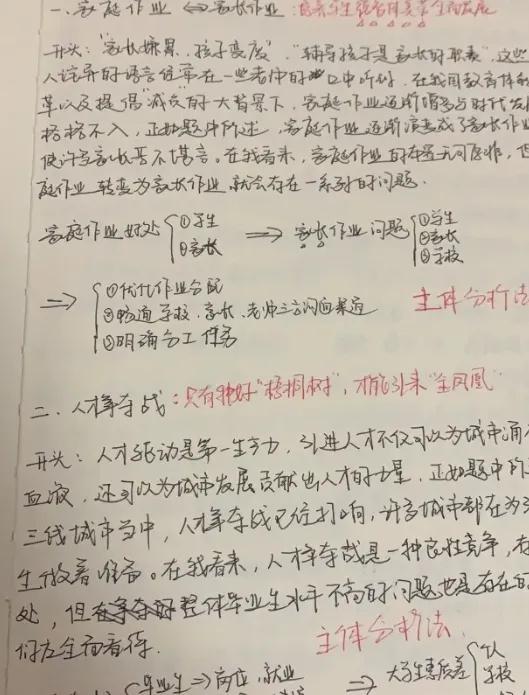 一、家庭作业 ⇔ 家长作业：培养学生综合素养全面发展
开头："家长嫌累，孩子受虐"，"辅导孩子是家长的职责"，这些
人诧异的语言经常在一些老师的口中听好，在我国教育体制
革以及提倡"减负"的大背景下，家庭作业逐渐
格格不入，正如题中所述，家庭作业逐渐演变成了家长作业
使许多家长苦不堪言。在我看来，家庭作业的布置无可厚非，但
庭作业转变为家长作业就会存在一系列的问题．
家庭作业好处 ①学生 ②家长 ⇒ 家长作业问题 ①学生 ②家长 ③学校
⇒ ①优化作业分配
②畅通学校、家长、老师三方沟通渠道
③明确分工任务
主体分析法
二、人才争夺战：只有种好"梧桐树"，才能引来"金凤凰"
开头：人才驱动是第一生产力，引进人才不仅可以为城市涌
血液，还可以为城市发展贡献出人才的力量，正如题中的
三线城市当中，人才争夺战已经打响，许多城市都在为
生做着准备。在我看来，人才争夺战是一种良性竞争，有
处，但整体毕业生水平不高的问题也是存在的
们应全面看待．
主体分析法．
毕业生⇒岗位、就业
⇒ 大学生素质差 个人
学校